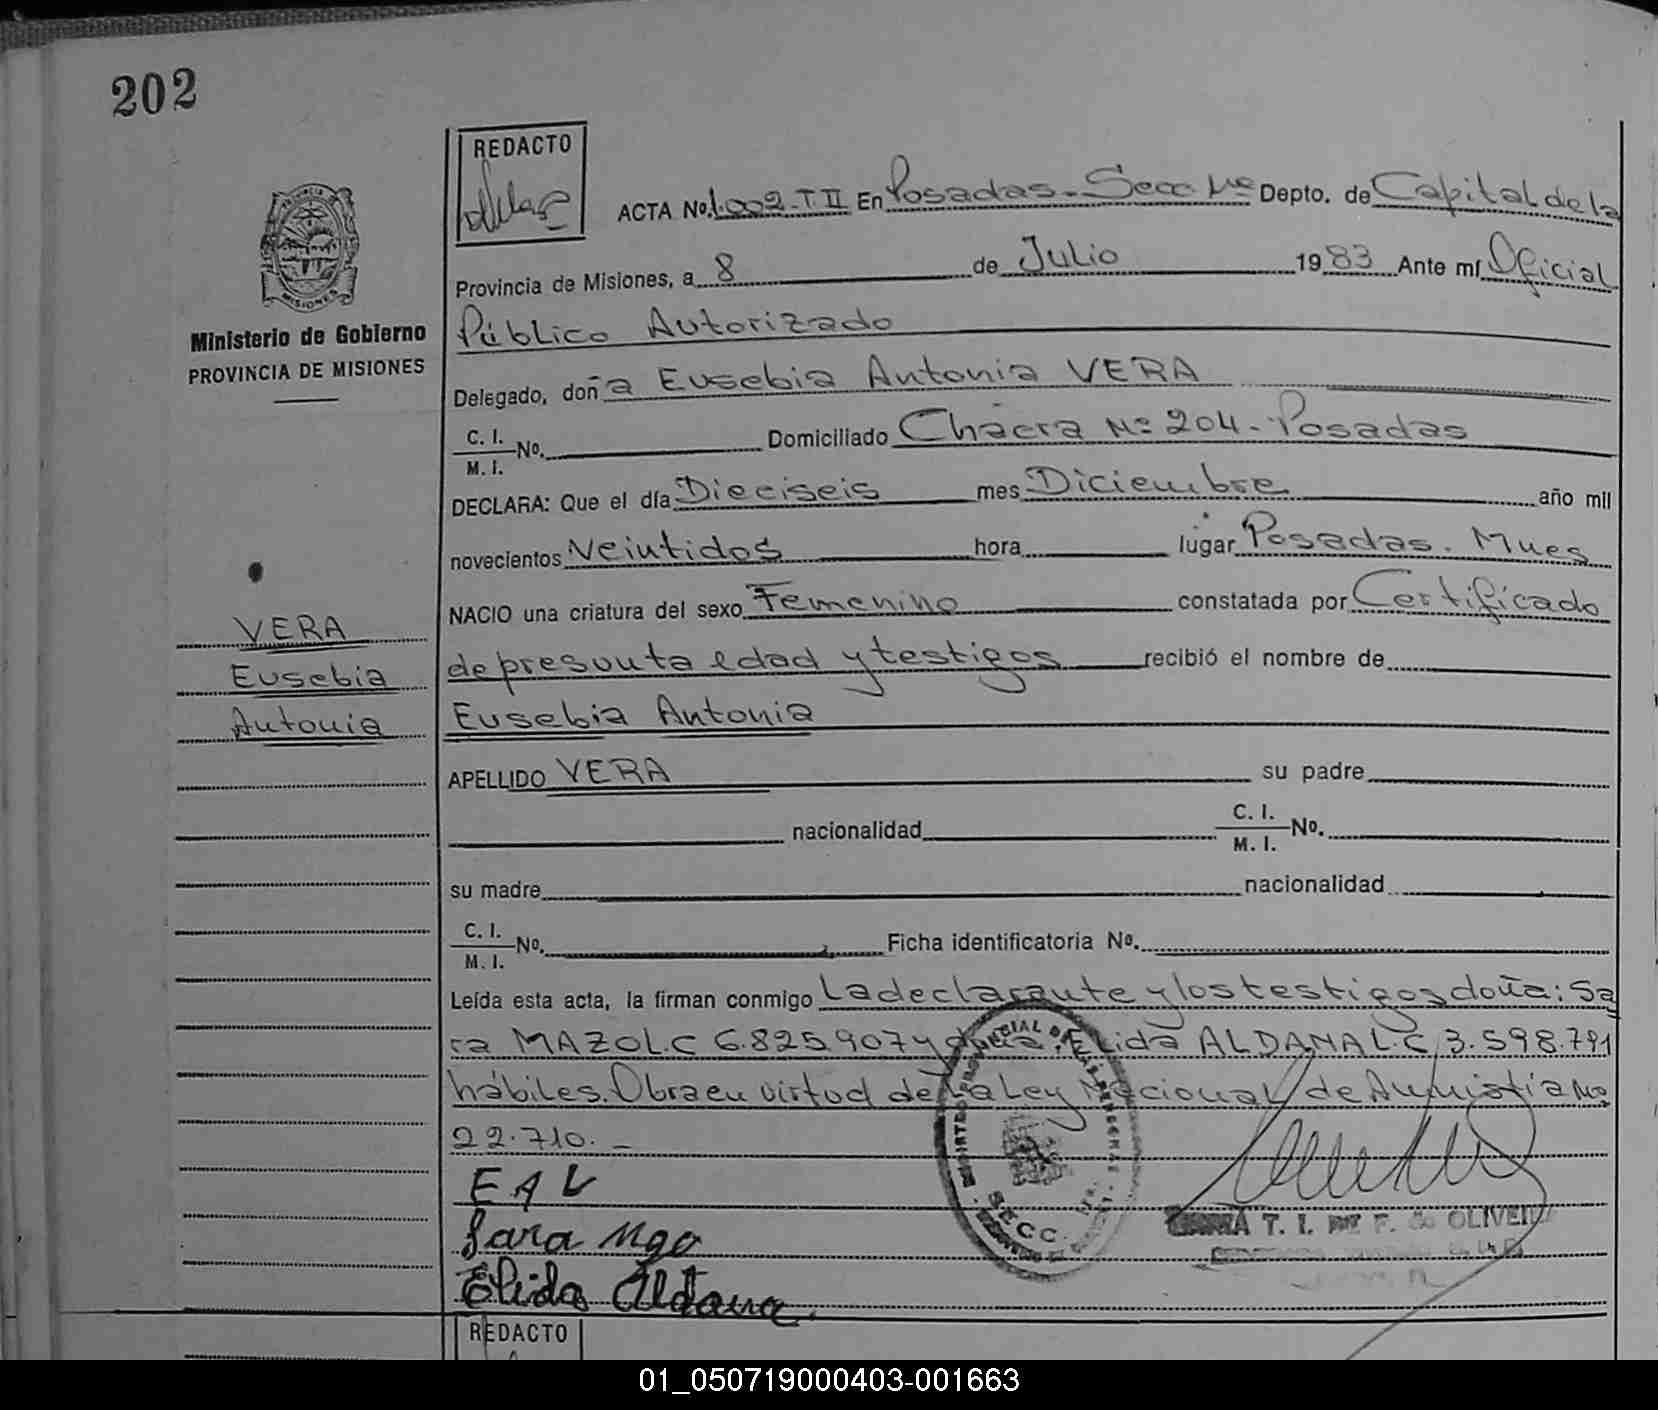 202
REDACTO
ACTA No. 1.002-T II En Posadas-Secc Nº Depto. de Capital de la
MISIONES
Provincia de Misiones, a 8 de Julio 1983 Ante mí Oficial
Ministerio de Gobierno
PROVINCIA DE MISIONES
Público Autorizado
Delegado, doña Eusebia Antonia VERA
C. I. M. I. No. Domiciliado Chacra Nº 204-Posadas
DECLARA: Que el día Dieciseis mes Diciembre año mil
novecientos Veintidos hora lugar Posadas. Mnes
NACIO una criatura del sexo Femenino constatada por Certificado
VERA
Eusebia
Antonia
de presunta edad y testigos recibió el nombre de
Eusebia Antonia
APELLIDO VERA su padre
nacionalidad C. I. M. I. No.
su madre nacionalidad
C. I. M. I. No. Ficha identificatoria No.
Leída esta acta, la firman conmigo La declarante y los testigos doña: Sa
ra MAZO L.C 6.825.907 y doña: Elida ALDANA L.C 3.598.791
hábiles. Obra en virtud de la Ley Nacional de Amnistía No
22.710.-
E A V
Sara
Elida Aldana
SECC.
T. I. DE F. de OLIVEIRA
REDACTO
01_050719000403-001663